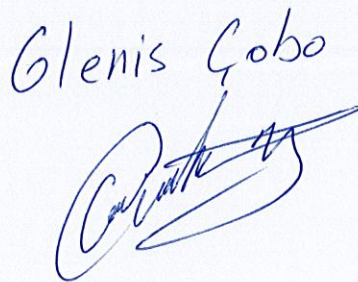 Glenis Çobo